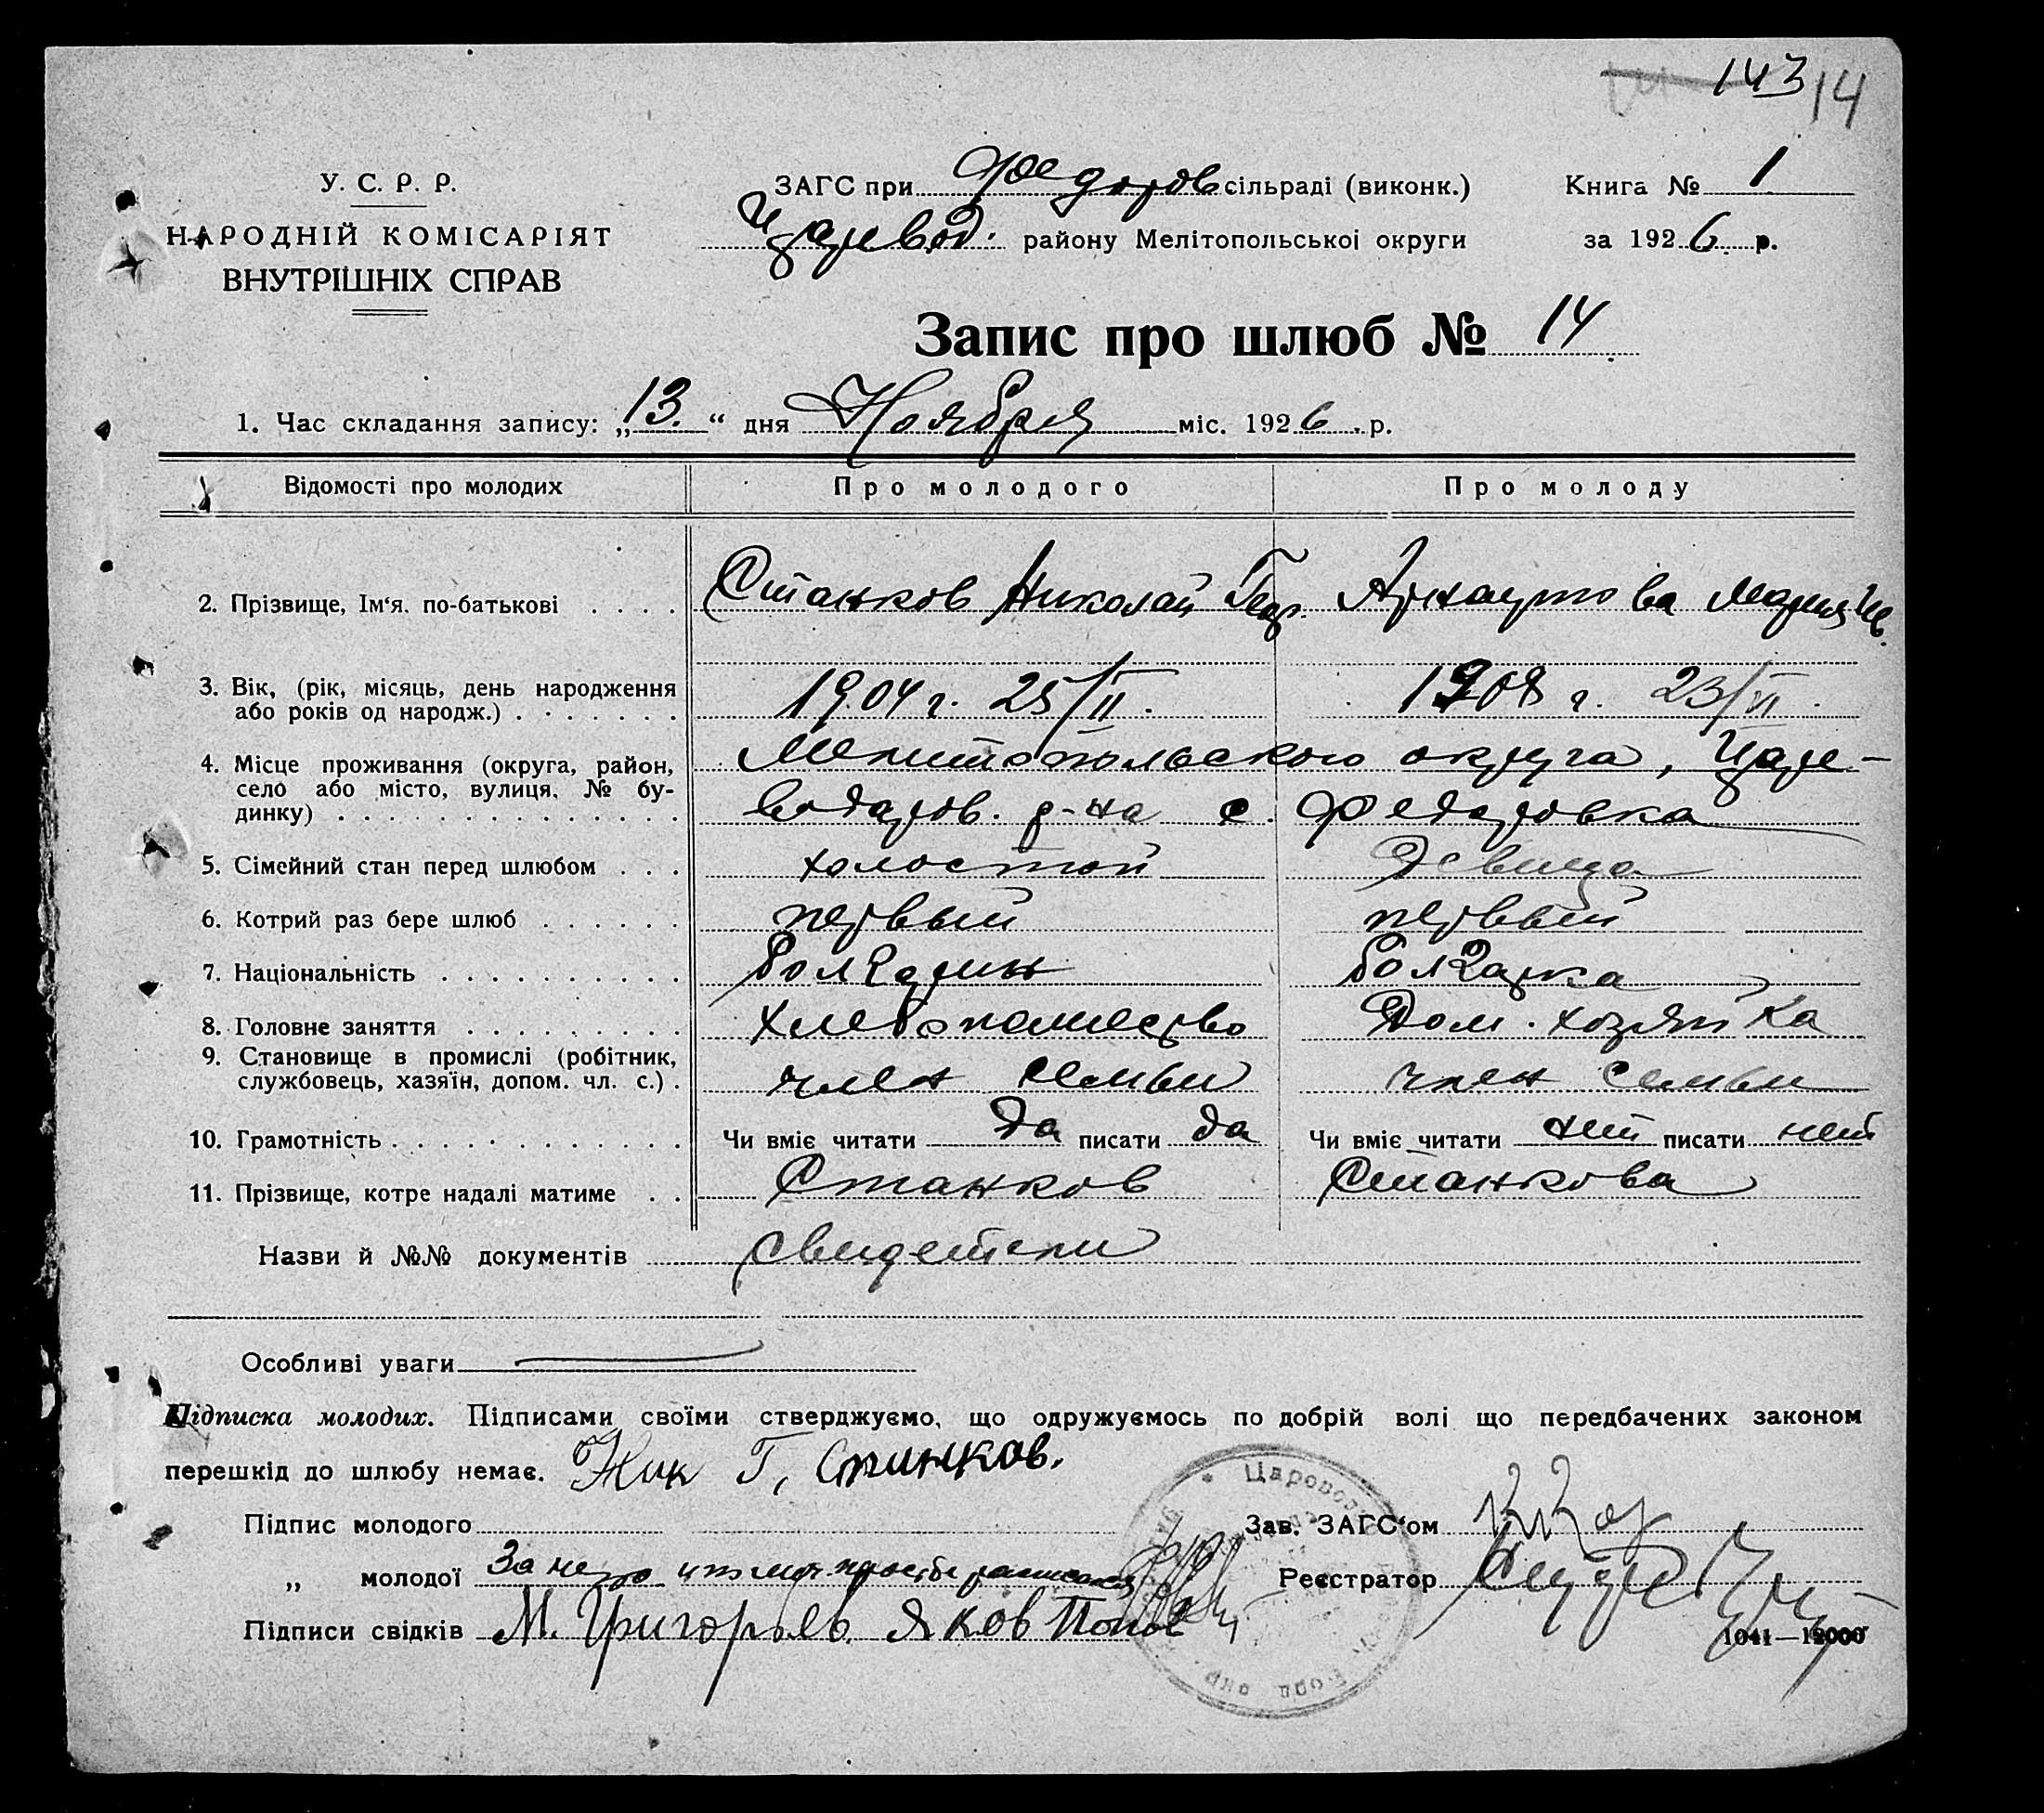 143 14
У. С. Р. Р.
НАРОДНІЙ КОМІСАРІЯТ
ВНУТРІШНІХ СПРАВ
ЗАГС при Федоров сільраді (виконк.) Книга № 1
Царевод. району Мелітопольської округи за 1926 р.
Запис про шлюб № 14
1. Час складання запису: „13.“ дня Ноября міс. 1926 р.
Відомості про молодих Про молодого Про молоду
2. Прізвище, Ім‘я, по-батькові . . . . Станков Николай Геор. Арнаутова Мария
3. Вік, (рік, місяць, день народження 1904 г. 25/II. 1908 г. 23/VI.
або років од народж.) . . . . . . .
4. Місце проживання (округа, район, Мелитопольского округа, Царе-
село або місто, вулиця, № бу- водаров. р-на с. Федоровка
динку) . . . . . . . . . . . . . .
5. Сімейний стан перед шлюбом . . . холостой Девица
6. Котрий раз бере шлюб . . . . . . первый первый
7. Національність . . . . . . . . . . Болгарин Болгарка
8. Головне заняття . . . . . . . . . хлебопашество Дом. хозяйка
9. Становище в промислі (робітник,
службовець, хазяїн, допом. чл. с.) . член семьи член семьи
10. Грамотність . . . . . . . . . . . . Чи вміє читати да писати да Чи вміє читати нет писати нет
11. Прізвище, котре надалі матиме . . Станков Станкова
Назви й №№ документів свидетели
Особливі уваги
Підписка молодих. Підписами своїми стверджуємо, що одружуємось по добрій волі що передбачених законом
перешкід до шлюбу немає. Ник Г, Станков.
Підпис молодого Зав. ЗАГС‘ом
„ молодої За негр просьбе расписался Реєстратор
Підписи свідків М. Григорьев Яков Попов
1041—12000